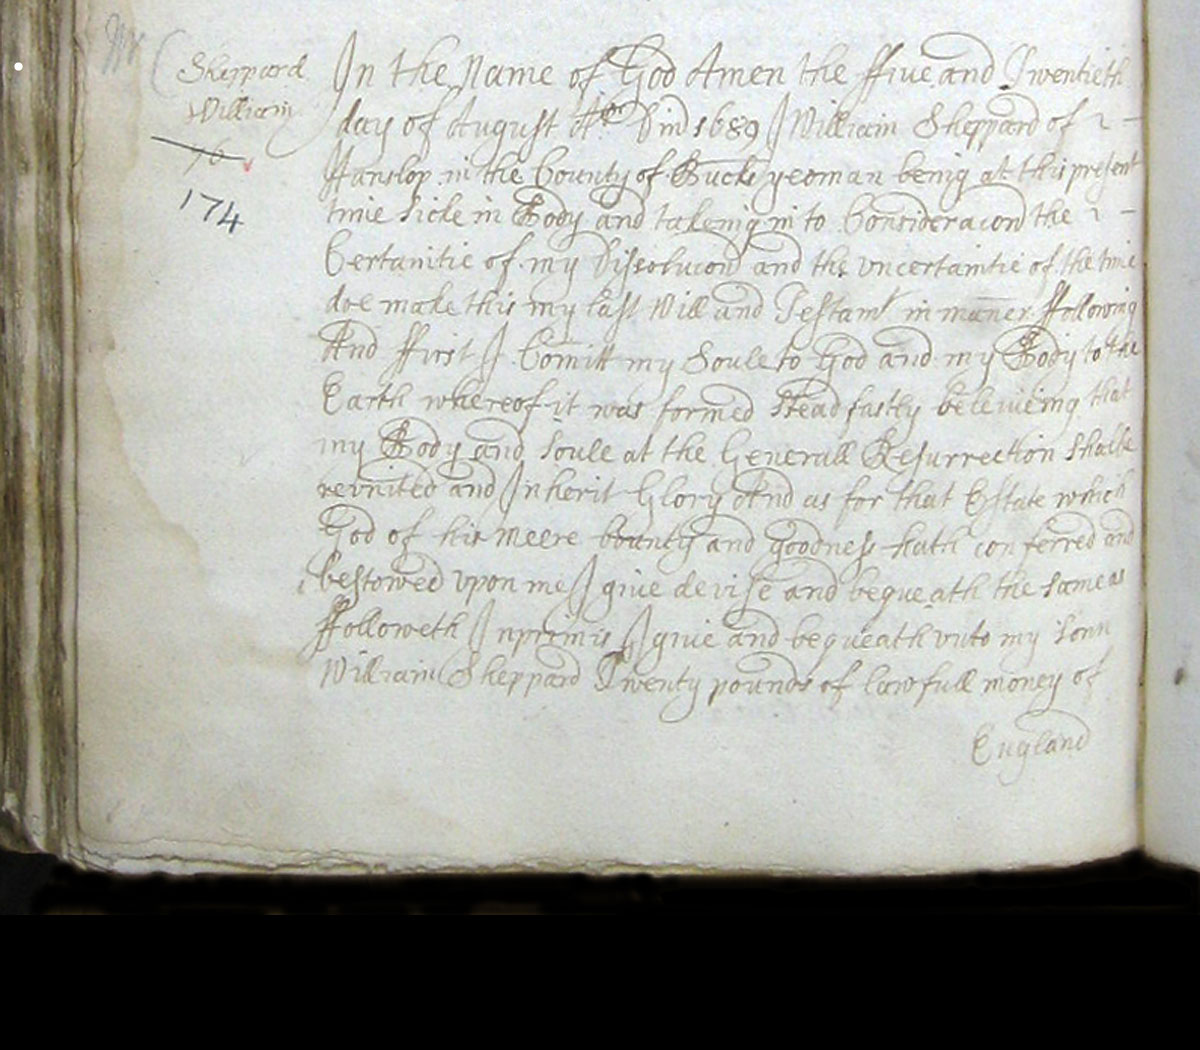 Sheppard
William
76
174
In the Name of God Amen the ffive and Twentieth
day of August Ao Dni 1689 I William Sheppard of
Hanslop in the County of Bucks yeoman being at this present
time sicke in Body and takeing in to Consideracon the
Certaintie of my Dissolucon and the vncertaintie of the time
doe make this my last Will and Testamt in maner ffollowing
And ffirst I Comitt my Soule to God and my Body to the
Earth whereof it was formed Steadfastly beleiveing that
my Body and Soule at the Generall Resurrection shalbe
revnited and Inherit Glory And as for that Estate which
God of his meere bounty and goodness hath conferred and
bestowed vpon me I give devise and bequeath the same as
ffolloweth Inprimis I give and bequeath vnto my Sonn
William Sheppard Twenty pounds of lawfull money of
England